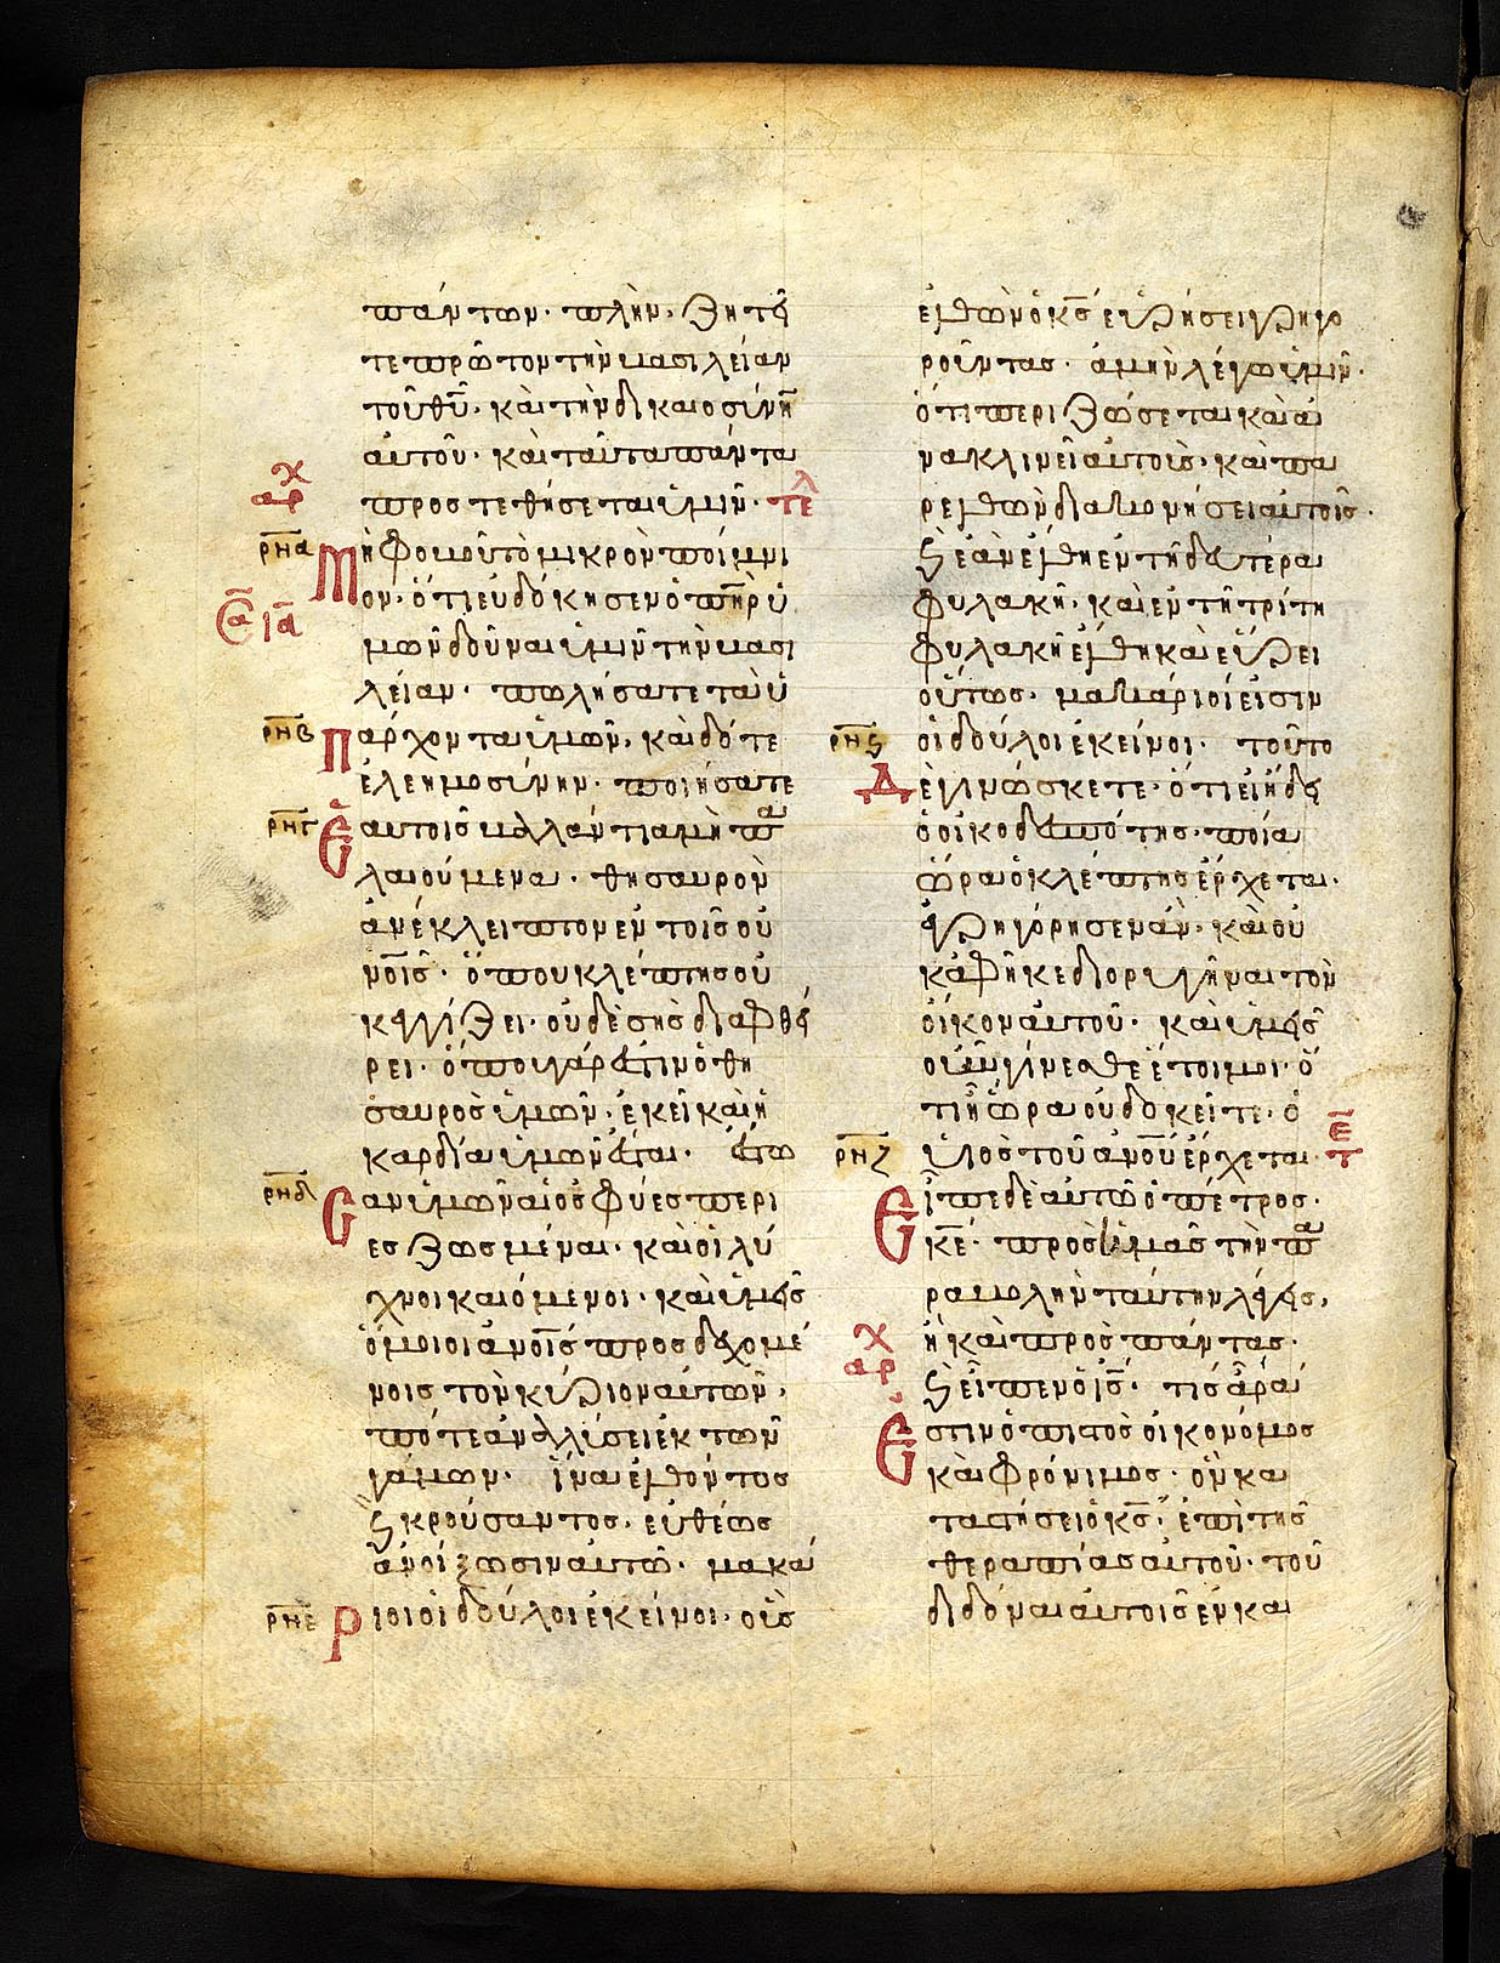 πάντων· πλὴν, ζητεῖ
τε πρῶτον τὴν βασιλείαν
τοῦ θῡ· καὶ τὴν δικαιοσύνη̄
αὐτοῦ· καὶ ταῦτα πάντα
προστεθήσεται ὑμῖν· τε̄λ
χ
αρ
ρ̄η̄α Μὴ φοβοῦ τὸ μικρὸν ποίμνι
ον· ὅτι εὐδόκησεν ὁ πη̄ρ ὑ
μῶν δοῦναι ὑμῖν τὴν βασι
λείαν· πωλήσατε τὰ ὑ
ρ̄η̄β Παρχοντα ὑμῶν, καὶ δότε
ἐλεημοσύνην· ποιήσατε
ρ̄η̄γ Ἑαυτοῖς βαλλάντια μὴ πα
λαιούμενα· θησαυρὸν
ἀνέκλειπτον ἐν τοῖς οὐ
νο̄ῖς· ὅπου κλέπτης οὐ
κ ἐγγίζει· οὐδὲ σὴς διαφθεί
ρει· ὅπου γάρ ἐστιν ὁ θη
σαυρὸς ὑμῶν· ἐκεῖ καὶ ἡ
καρδία ὑμῶν ἔσται· ἔστω
ρ̄η̄δ Σαν ὑμῶν αἱ ὀσφύες περι
εζωσμέναι· καὶ οἱ λύ
χνοι καιόμενοι· καὶ ὑμεῖς
ὅμοιοι ἀνο̄ῖς προσδεχομέ
νοις τὸν κύριον αὐτῶν·
πότε ἀναλύσει ἐκ τῶν
γάμων· ἵνα ἐλθόντος
ϗ κρούσαντος, εὐθέως
ἀνοίξωσιν αὐτῷ· μακά
ρ̄η̄ε Ριοι οἱ δοῦλοι ἐκεῖνοι· οὓς
ἐλθὼν ὁ κ̄ς εὑρήσει γρηγο
ροῦντας· ἀμὴν λέγω ὑμῖν·
ὅτι περιζώσεται καὶ ἀ
νακλινεῖ αὐτοὺς· καὶ πα
ρελθὼν διακονήσει αὐτοῖς·
ϗ ἐὰν ἔλθη ἐν τῆ δευτέρα
φυλακῆ· καὶ ἐν τῆ τρίτη
φυλακῆ ἔλθη καὶ εὕρει
οὕτως· μακάριοί εἰσιν
ρ̄η̄ϛ οἱ δοῦλοι ἐκεῖνοι· τοῦτο
Δὲ γινώσκετε· ὅτι εἰ ἤδει
ὁ οἰκοδεσπότης· ποία
ὥρα ὁ κλέπτης ἔρχεται·
ἐγρηγόρησεν ἄν· καὶ οὐ
κ ἀφῆκε διορυγῆναι τὸν
οἶκον αὐτοῦ· καὶ ὑμεῖς
οὖν γίνεσθε ἕτοιμοι· ὅ
τι ἧ ὥρα οὐ δοκεῖτε· ὁ
ρ̄η̄ζ υἱὸς τοῦ ἀνο̄ῦ ἔρχεται·
Εἶπε δὲ αὐτῷ ὁ πέτρος·
κ̄ε· πρὸς ἡμᾶς τὴν πα
ραβολὴν ταύτην λέγεις,
ἢ καὶ πρὸς πάντας·
χ
αρ
ϗ εἶπεν ὁ ῑς̄· τίς ἄρα
Ἐστιν ὁ πιστὸς οἰκονόμος
καὶ φρόνιμος· ὃν κα
ταστήσει ὁ κ̄ς, ἐπὶ τῆς
θεραπίας αὐτοῦ· τοῦ
διδόναι αὐτοῖς ἐν και